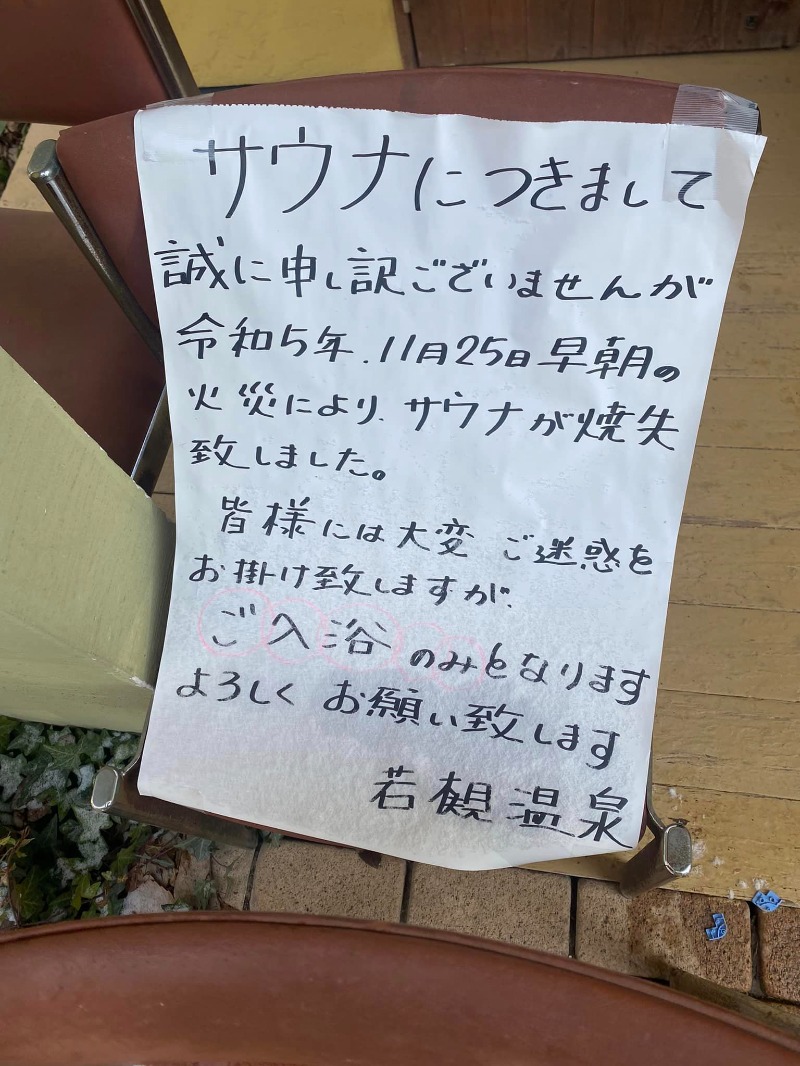 サウナにつきまして
誠に申し記ございませんが
令和5年.11月25日早朝の
火災により、サウナが焼失
致しました。
皆様には大変 ご迷惑を
お掛け致しますが、
ご入浴のみとなります
よろしく お願い致します
若槻温泉